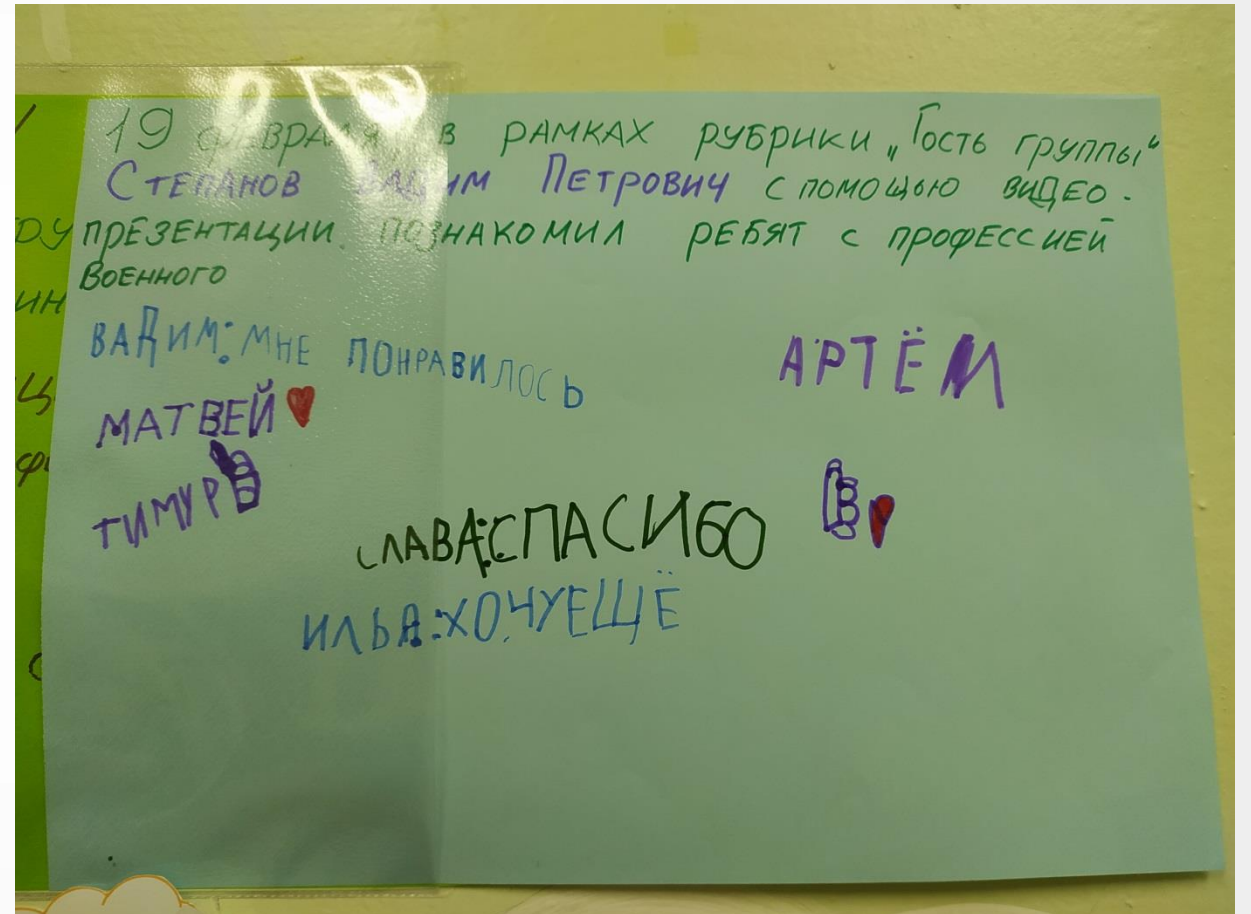 19 февраля в рамках рубрики „Гость группы“
Степанов Вадим Петрович с помощью видео-
презентации познакомил ребят с профессией
военного
ВАДИМ: МНЕ ПОНРАВИЛОСЬ
АРТЁМ
МАТВЕЙ
ТИМУР
СЛАВА:СПАСИБО
ИЛЬЯ:ХОЧУЕЩЁ